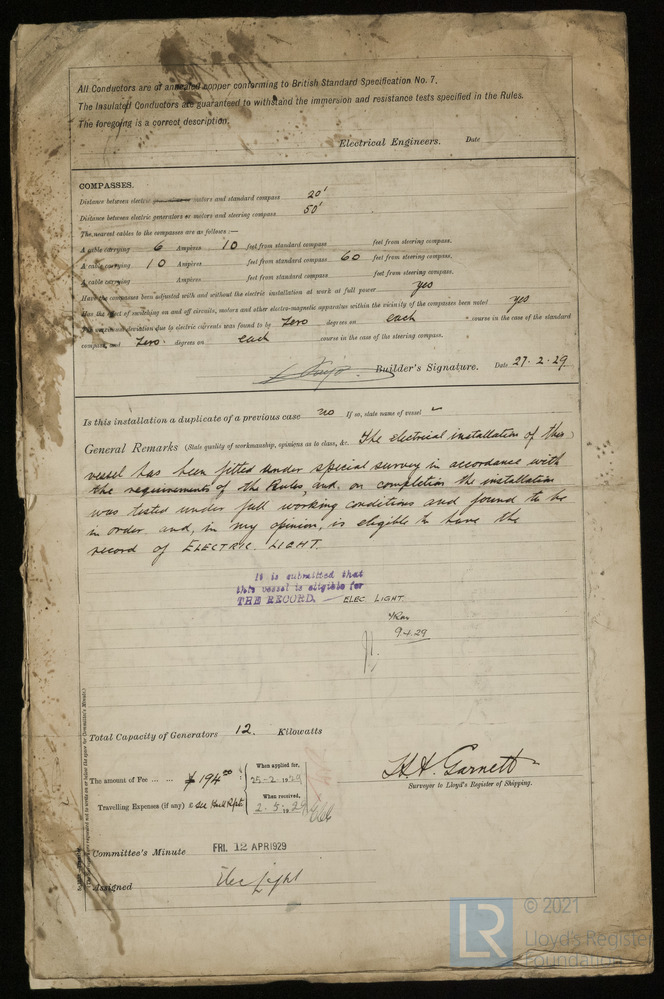 All Conductors are of annealed copper conforming to British Standard Specification No. 7.
The Insulated Conductors are guaranteed to withstand the immersion and resistance tests specified in the Rules.
The foregoing is a correct description,
Electrical Engineers. Date
COMPASSES.
Distance between electric motors and standard compass 20'
Distance between electric generators or motors and steering compass 50'
The nearest cables to the compasses are as follows :—
A cable carrying 6 Ampères 10 feet from standard compass feet from steering compass.
A cable carrying 10 Ampères feet from standard compass 60 feet from steering compass.
A cable carrying Ampères feet from standard compass feet from steering compass.
Have the compasses been adjusted with and without the electric installation at work at full power yes
Has the effect of switching on and off circuits, motors and other electro-magnetic apparatus within the vicinity of the compasses been noted yes
The maximum deviation due to electric currents was found to be Zero degrees on each course in the case of the standard
compass, and Zero. degrees on each course in the case of the steering compass.
Builder's Signature. Date 27.2.29.
Is this installation a duplicate of a previous case no If so, state name of vessel
General Remarks (State quality of workmanship, opinions as to class, &c. The electrical installation of this
vessel has been fitted under special survey in accordance with
the requirements of the Rules, and, on completion the installation
was tested under full working conditions and found to be
in order and, in my opinion, is eligible to have the
record of ELECTRIC LIGHT.
It is submitted that
this vessel is eligible for
THE RECORD. ELEC LIGHT
9.4.29
Total Capacity of Generators 12. Kilowatts
The amount of Fee ... ... $194.00
When applied for,
25-2-1929
Travelling Expenses (if any) £ see Hull Rept
When received,
2.5.1929
H.A. Garnett
Surveyor to Lloyd's Register of Shipping.
Committee's Minute FRI. 12 APR 1929
Assigned Elec Light
LR © 2021
Lloyd's Register
Foundation